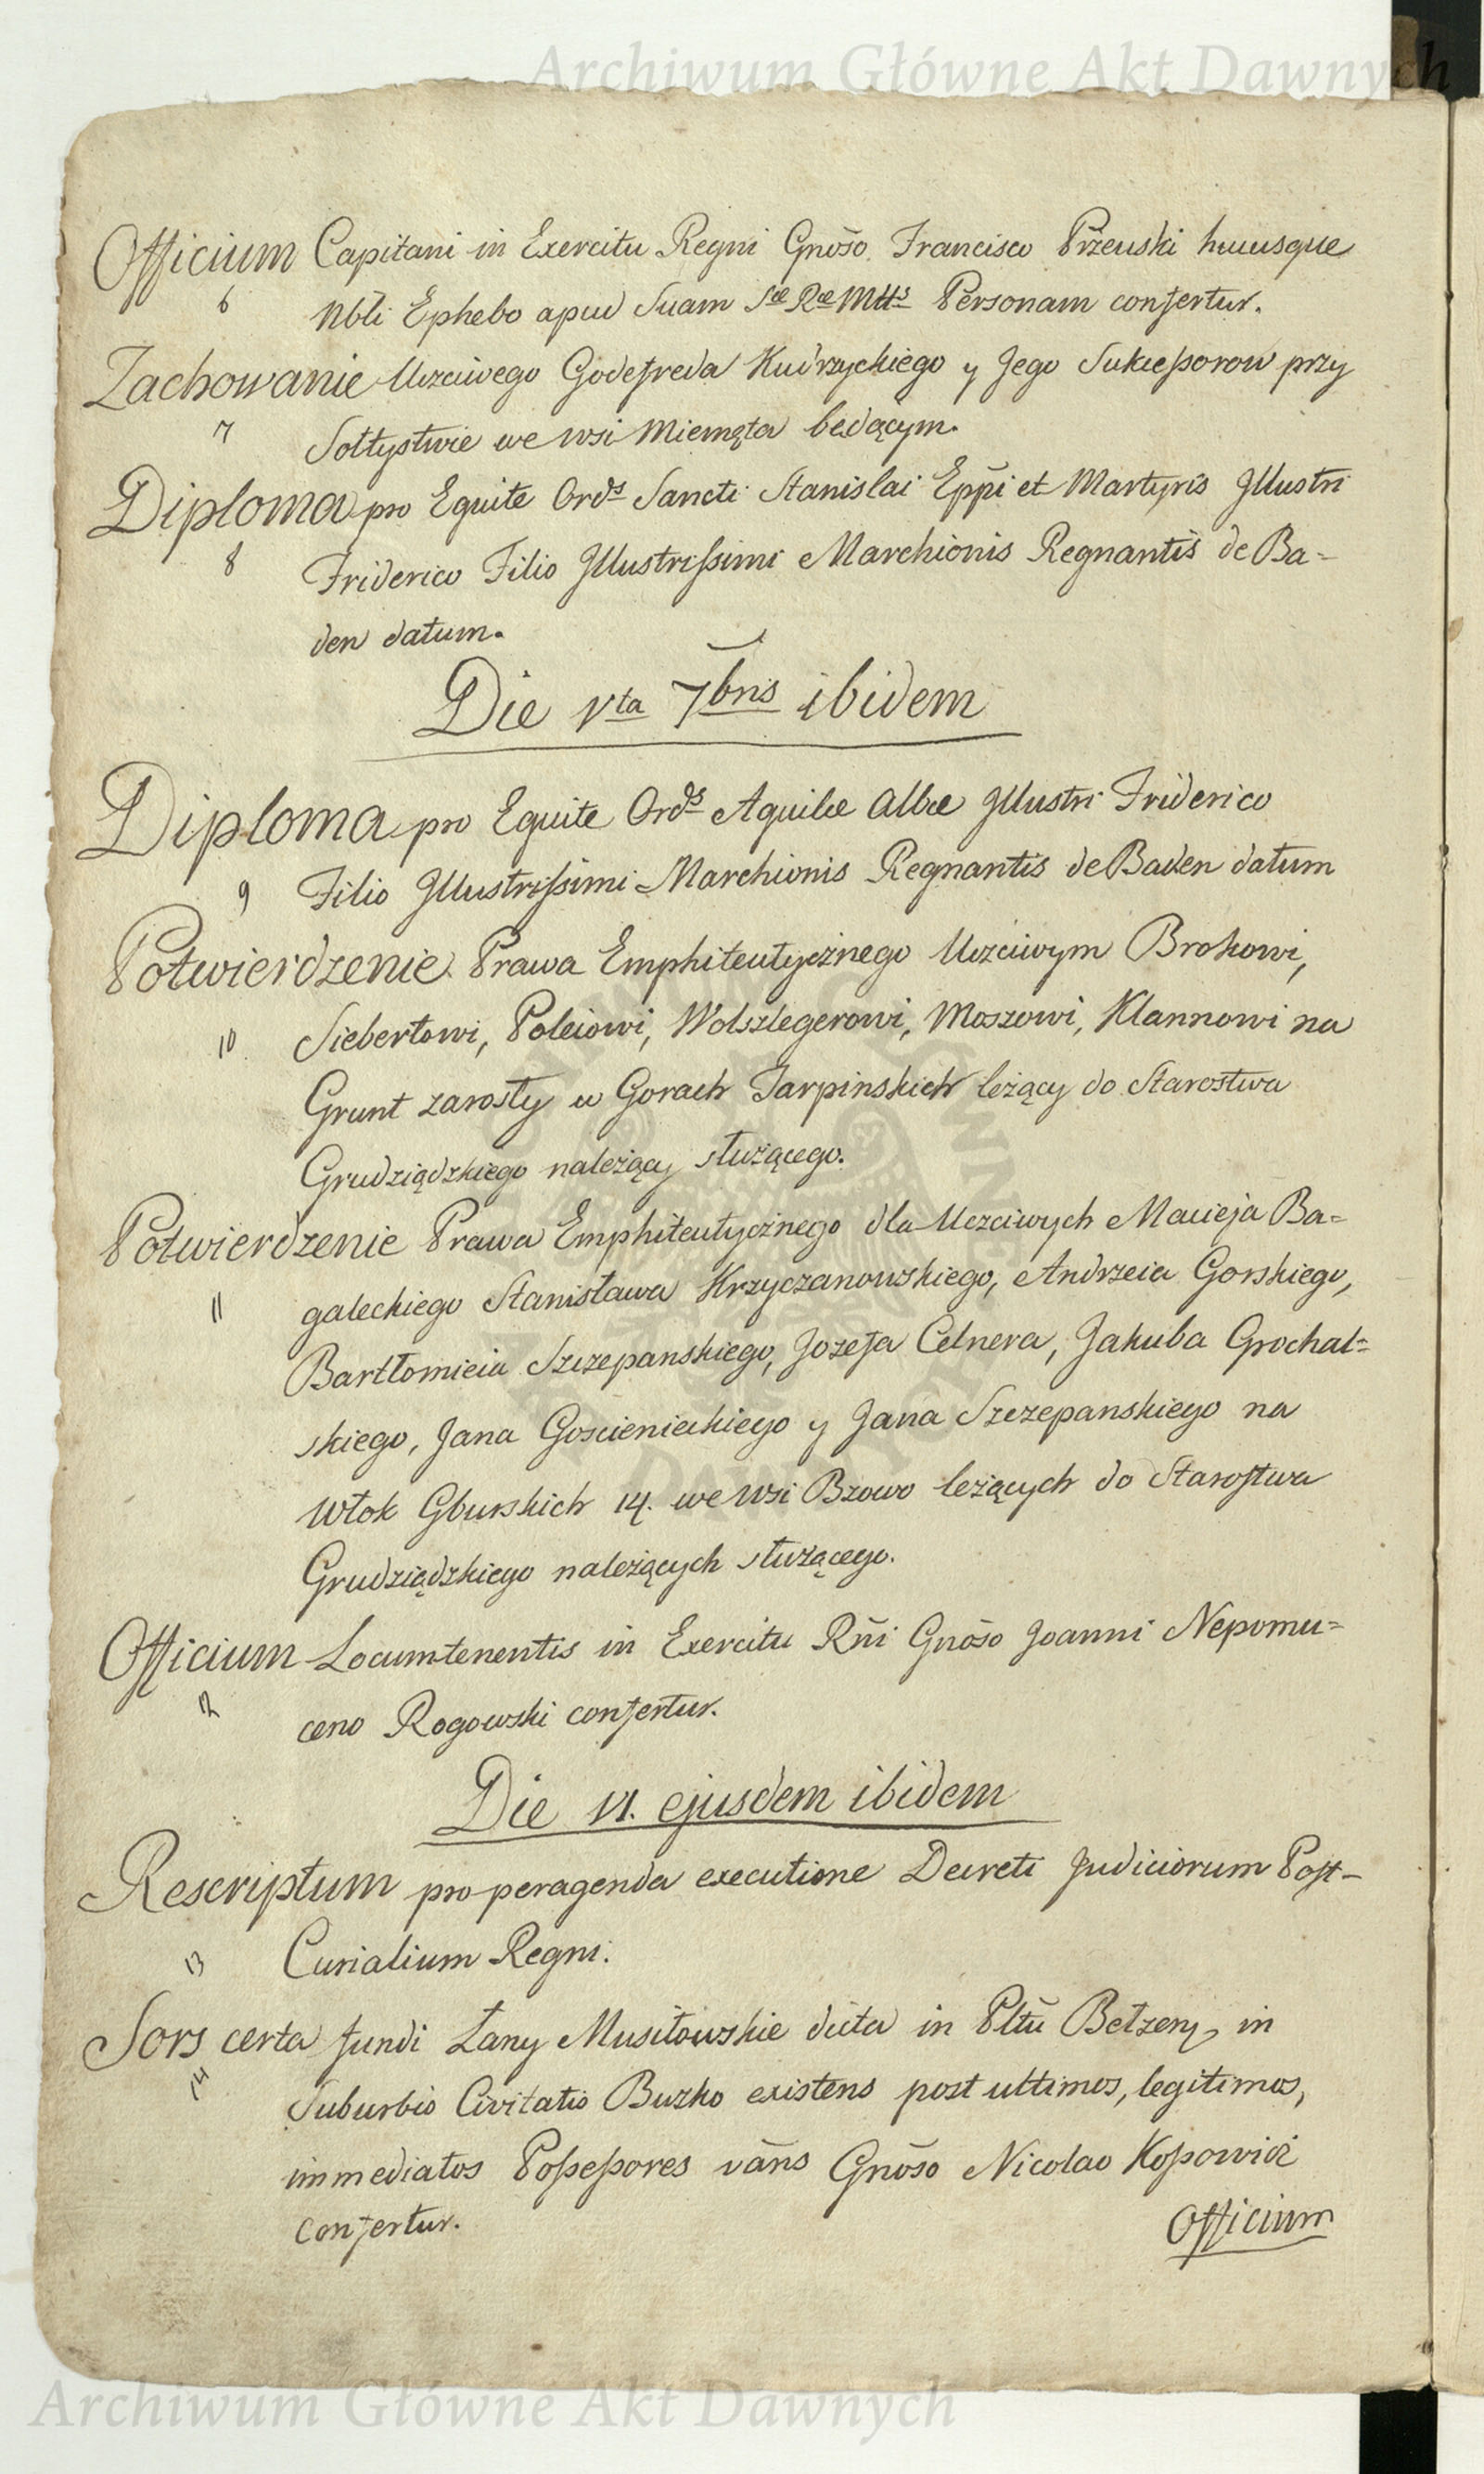 Archiwum Główne Akt Dawnych
Officium Capitani in Exercitu Regni Gnōso Francisco Przeuski hucusque
6 Nbli Ephebo apud Suam Sæ Ræ Mtts Personam confertur.
Zachowanie Uczciwego Godefreda Kudrzyckiego y Jego Sukceßorow przy
7 Sołtystwie we wsi Miemęta będącym.
Diploma pro Equite Ords Sancti Stanislai Eppi et Martyris Jllustri
8 Friderico Filio Jllustrissimi Marchionis Regnantis de Ba=
den datum.
Die Vta 7bris ibidem
Diploma pro Equite Ords Aquilæ Albæ Jllustri Friderico
9 Filio Jllustrissimi Marchionis Regnantis de Baden datum
Potwierdzenie Prawa Emphiteutycznego Uczciwym Brokowi,
10 Siebertowi, Poleiowi, Wolszlegerowi, Moszowi, Klannowi na
Grunt zarosły w Gorach Jarpinskich leżący do Starostwa
Grudziądzkiego należący służącego.
Potwierdzenie Prawa Emphiteutycznego dla Uczciwych Macieja Ba=
11 galeckiego Stanisława Krzyczanowskiego, Andrzeia Gorskiego,
Bartłomieia Szczepanskiego, Jozefa Celnera, Jakuba Grochal=
skiego, Jana Goscienieckiego y Jana Szczepanskiego na
Włok Gburskich 14. we wsi Bzowo leżących do Starostwa
Grudziądzkiego należących służącego.
Officium Locumtenentis in Exercitu Rn̄i Gnōso Joanni Nepomu=
12 ceno Rogowski confertur.
Die VI. ejusdem ibidem
Rescriptum pro peragenda executione Decreti Judiciorum Post-
13 Curialium Regni.
Sors certa fundi Łany Musiłowskie dicta in Pltū Bełzen, in
14 Suburbio Civitatis Buzko existens post ultimos, legitimos,
immediatos Poßeßores vāns Gnōso Nicolao Koßowicz
confertur.
Officium
Archiwum Główne Akt Dawnych